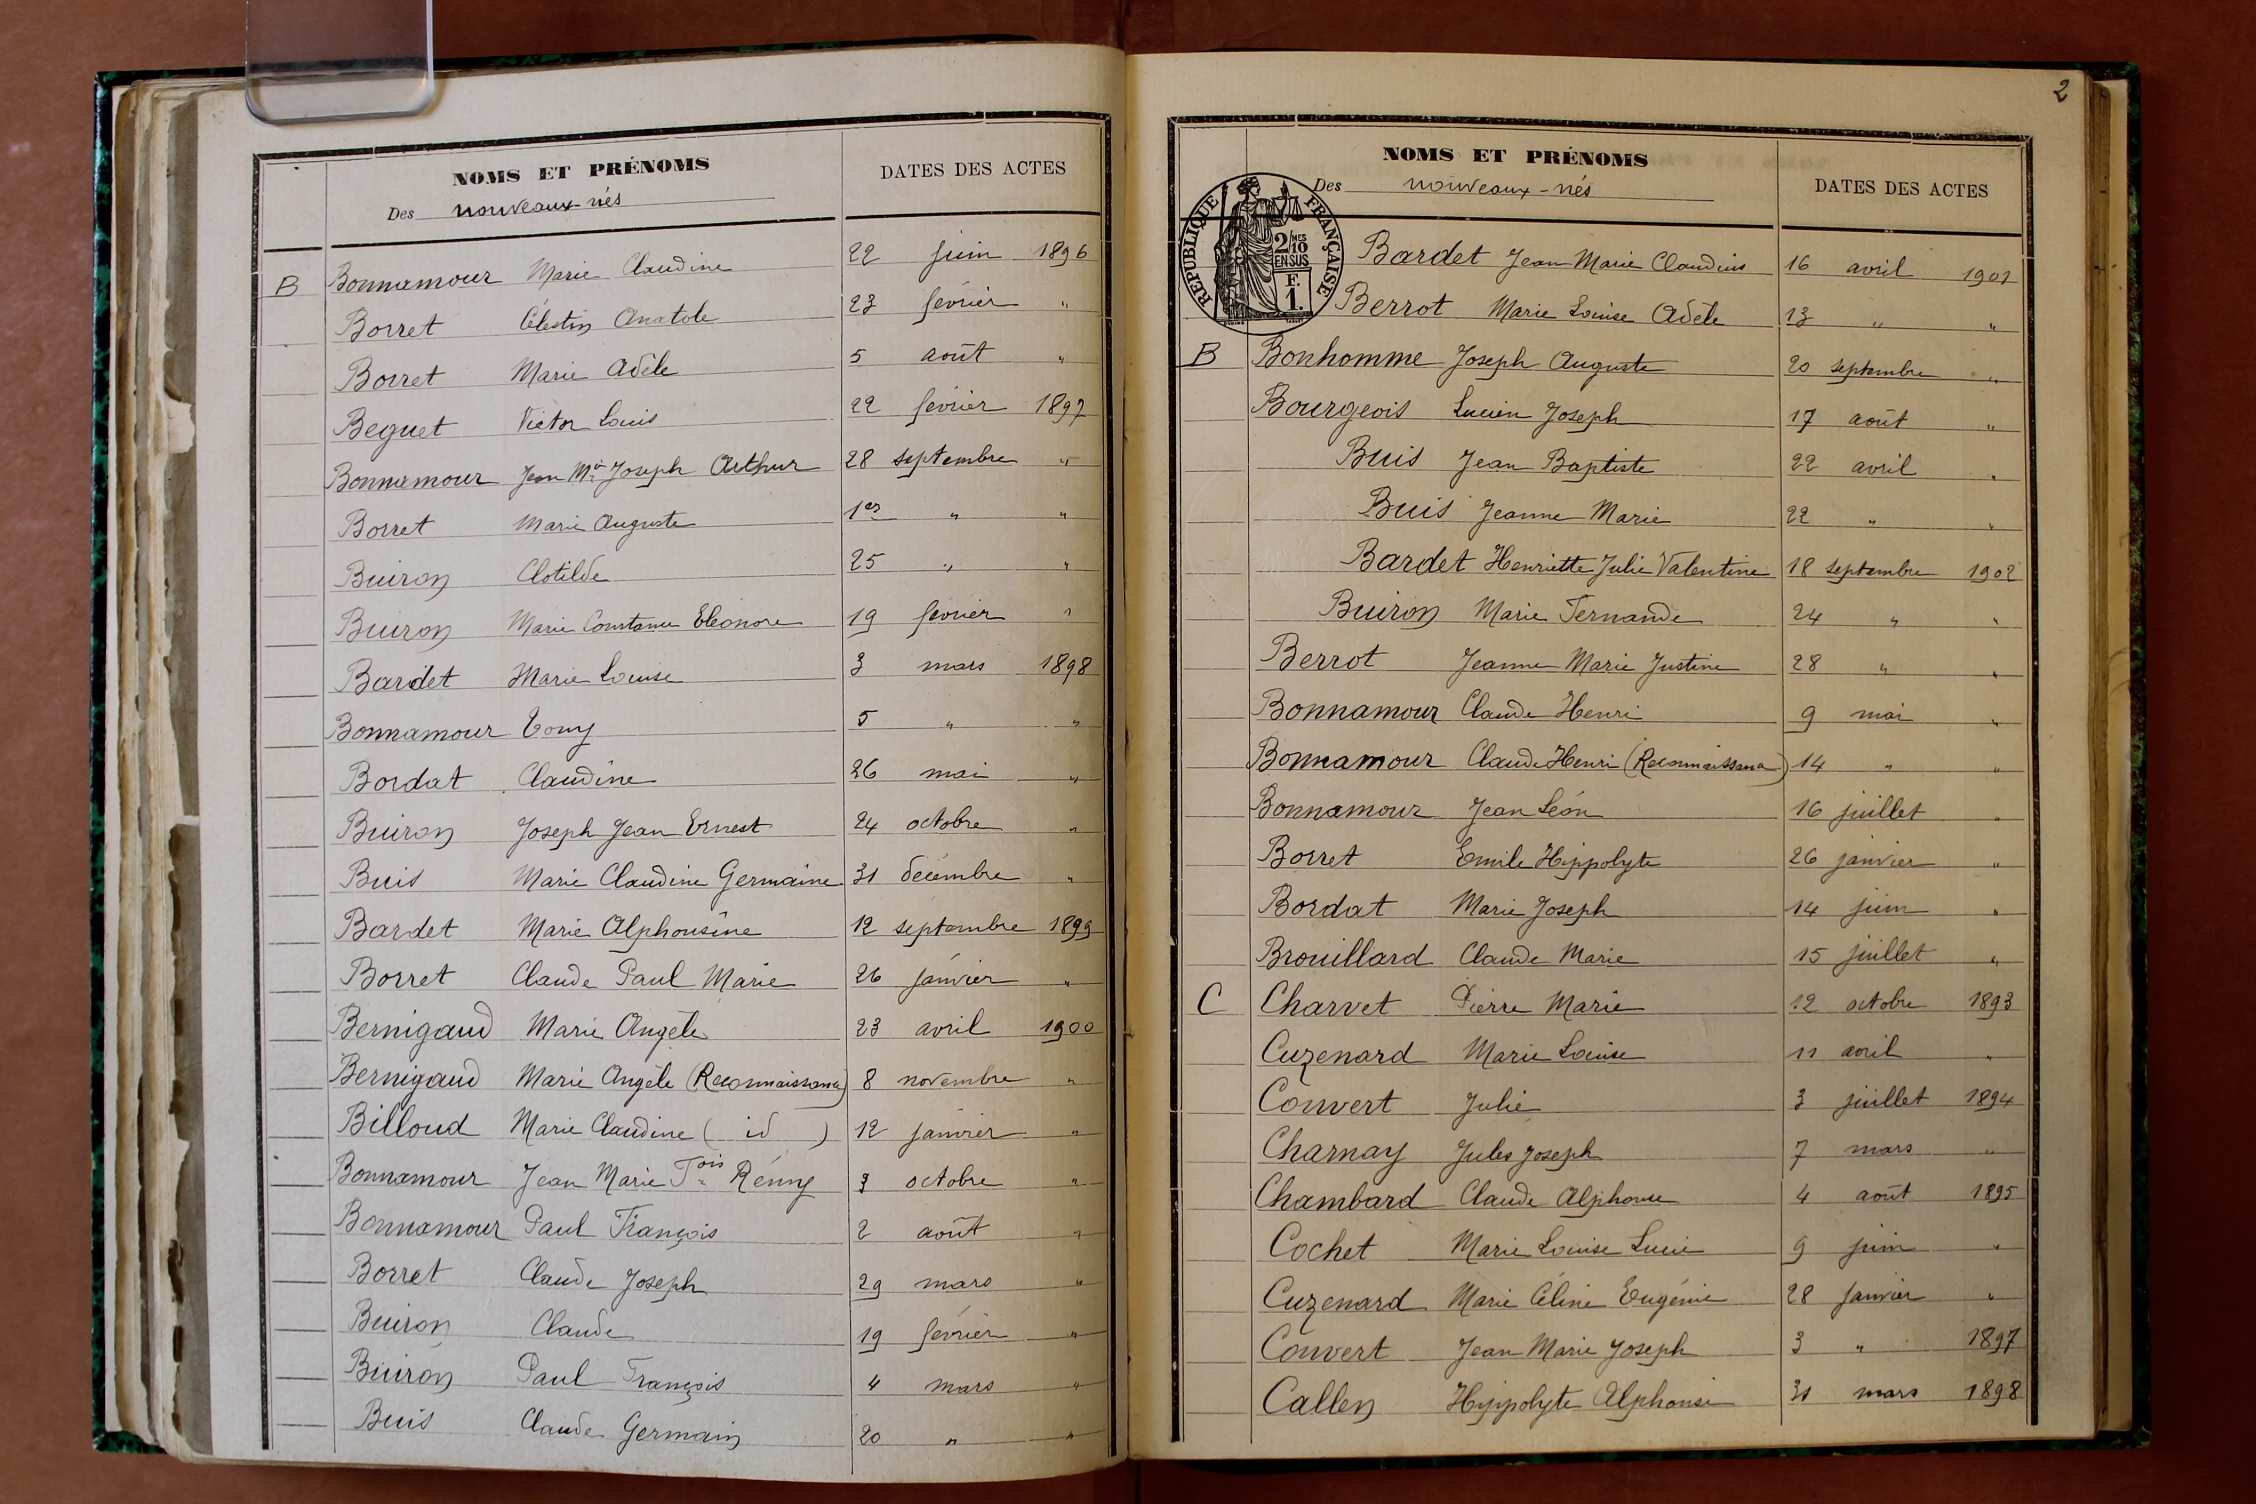 NOMS ET PRÉNOMS
DATES DES ACTES
Des nouveaux-nés
B Bonnamour Marie Claudine 22 juin 1896
Borret Célestin Anatole 23 février "
Borret Marie Adèle 5 août "
Beguet Victor Louis 22 février 1897
Bonnamour Jean Mie Joseph Arthur 28 septembre "
Borret Marie Auguste 1er " "
Buiron Clotilde 25 " "
Buiron Marie Constance Eléonore 19 février "
Bardet Marie Louise 3 mars 1898
Bonnamour Tony 5 " "
Bordat Claudine 26 mai "
Buiron Joseph Jean Ernest 24 octobre "
Buis Marie Claudine Germaine 31 décembre "
Bardet Marie Alphonsine 12 septembre 1899
Borret Claude Paul Marie 26 janvier "
Bernigaud Marie Angèle 23 avril 1900
Bernigaud Marie Angèle (Reconnaissance) 8 novembre "
Billoud Marie Claudine ( id ) 12 janvier "
Bonnamour Jean Marie Fois Rémy 3 octobre "
Bonnamour Paul François 2 août "
Borret Claude Joseph 29 mars "
Buiron Claude 19 février "
Buiron Paul François 4 mars "
Buis Claude Germain 20 " "
2
NOMS ET PRÉNOMS
DATES DES ACTES
Des nouveaux-nés
RÉPUBLIQUE FRANÇAISE
2/10 MES
EN SUS
F.
1.
Bardet Jean Marie Claudius 16 avril 1901
Berrot Marie Louise Adèle 13 " "
B Bonhomme Joseph Auguste 20 septembre "
Bourgeois Lucien Joseph 17 août "
Buis Jean Baptiste 22 avril "
Buis Jeanne Marie 22 " "
Bardet Henriette Julie Valentine 18 septembre 1902
Buiron Marie Fernande 24 " "
Berrot Jeanne Marie Justine 28 " "
Bonnamour Claude Henri 9 mai "
Bonnamour Claude Henri (Reconnaissance) 14 " "
Bonnamour Jean Léon 16 juillet "
Borret Emile Hippolyte 26 janvier "
Bordat Marie Joseph 14 juin "
Brouillard Claude Marie 15 juillet "
C Charvet Pierre Marie 12 octobre 1893
Cuzenard Marie Louise 11 avril "
Convert Julie 3 juillet 1894
Charnay Jules Joseph 7 mars "
Chambard Claude Alphonse 4 août 1895
Cochet Marie Louise Lucie 9 juin "
Cuzenard Marie Céline Eugénie 28 janvier "
Convert Jean Marie Joseph 3 " 1897
Callen Hippolyte Alphonse 31 mars 1898